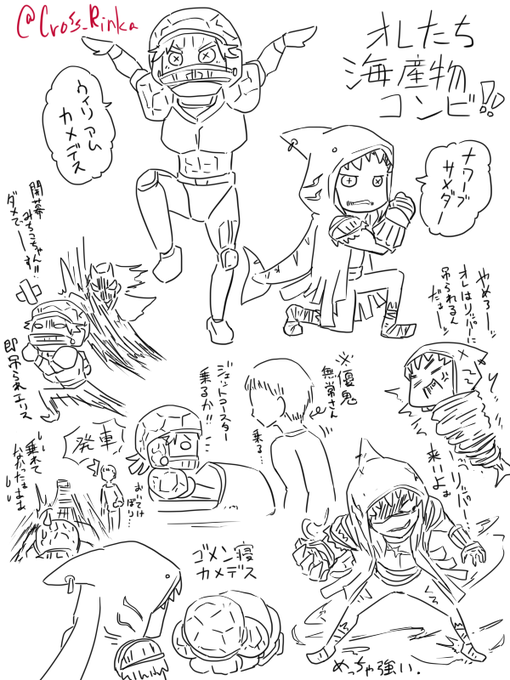 @Cross_Rinka
オレたち
海産物
コンビ!!
ウィリアム
カメデス
ナワーブ
サメダー
開幕
みちこちゃん!!
ダメでーーす
即吊られエリス
やめろーーッ
オレはリッパーに
吊られるん
だぁーーッ
※優鬼
無常さん
ジェットコースター
乗るか!!
乗る…
発車!
おいてけ
ぼり…
乗れて
なかたぁぁぁ
リッパー
来いよぉ
ゴメン寝
カメデス
めっちゃ強い.